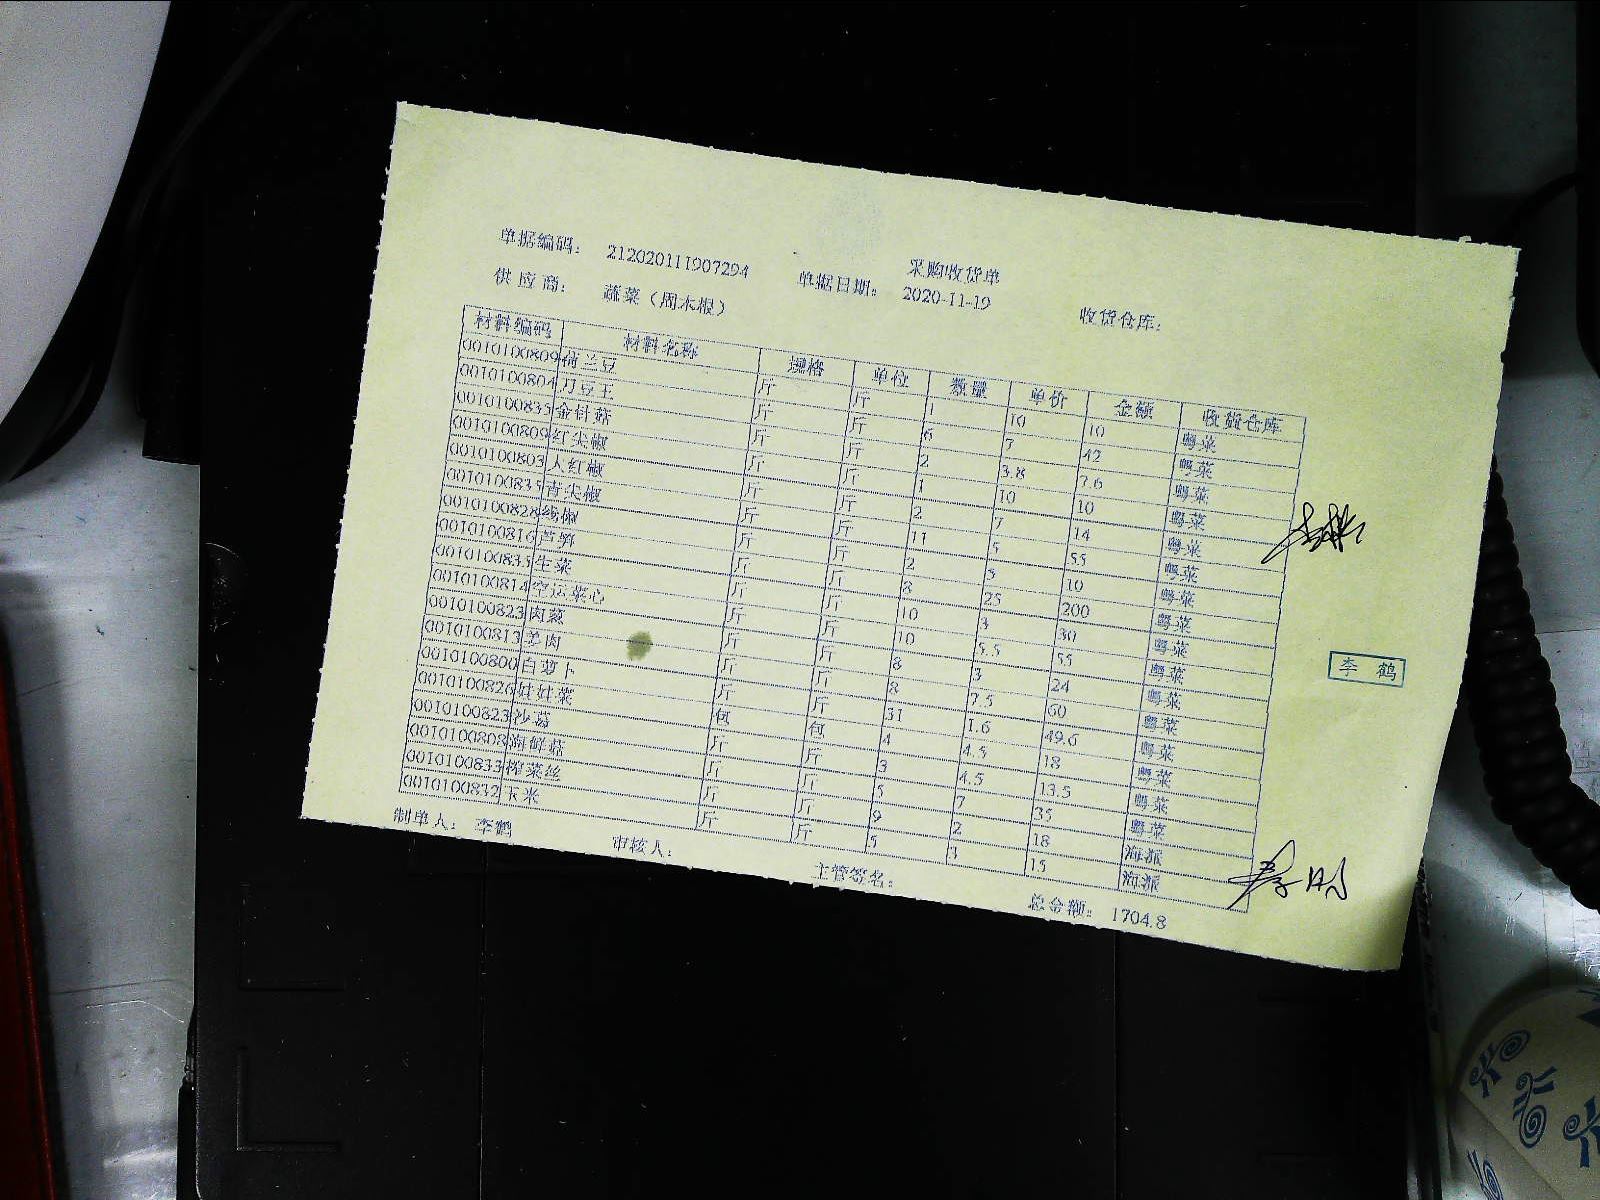 采购收货单
单据编码： 212020111907294 单据日期： 2020-11-19 收货仓库：
供应商： 蔬菜（周木根）
材料编码 材料名称 规格 单位 数量 单价 金额 收货仓库
0010100809 荷兰豆 斤 斤 1 10 10 粤菜
0010100804 刀豆王 斤 斤 6 7 42 粤菜
0010100835 金针菇 斤 斤 2 3.8 7.6 粤菜
0010100809 红尖椒 斤 斤 1 10 10 粤菜
0010100803 大红椒 斤 斤 2 7 14 粤菜
0010100835 青尖椒 斤 斤 11 5 55 粤菜
0010100828 线椒 斤 斤 2 5 10 粤菜
0010100816 芦笋 斤 斤 8 25 200 粤菜
0010100835 生菜 斤 斤 10 3 30 粤菜
0010100814 空运菜心 斤 斤 10 5.5 55 粤菜
0010100823 肉葱 斤 斤 8 3 24 粤菜
0010100813 姜肉 斤 斤 8 7.5 60 粤菜
0010100800 白萝卜 斤 斤 31 1.6 49.6 粤菜
0010100826 娃娃菜 包 包 4 4.5 18 粤菜
0010100823 沙葛 斤 斤 3 4.5 13.5 粤菜
0010100808 海鲜菇 斤 斤 5 7 35 粤菜
0010100833 榨菜丝 斤 斤 9 2 18 海派
0010100832 玉米 斤 斤 5 3 15 海派
李 鹤
制单人： 李鹤 审核人： 主管签名： 总金额： 1704.8